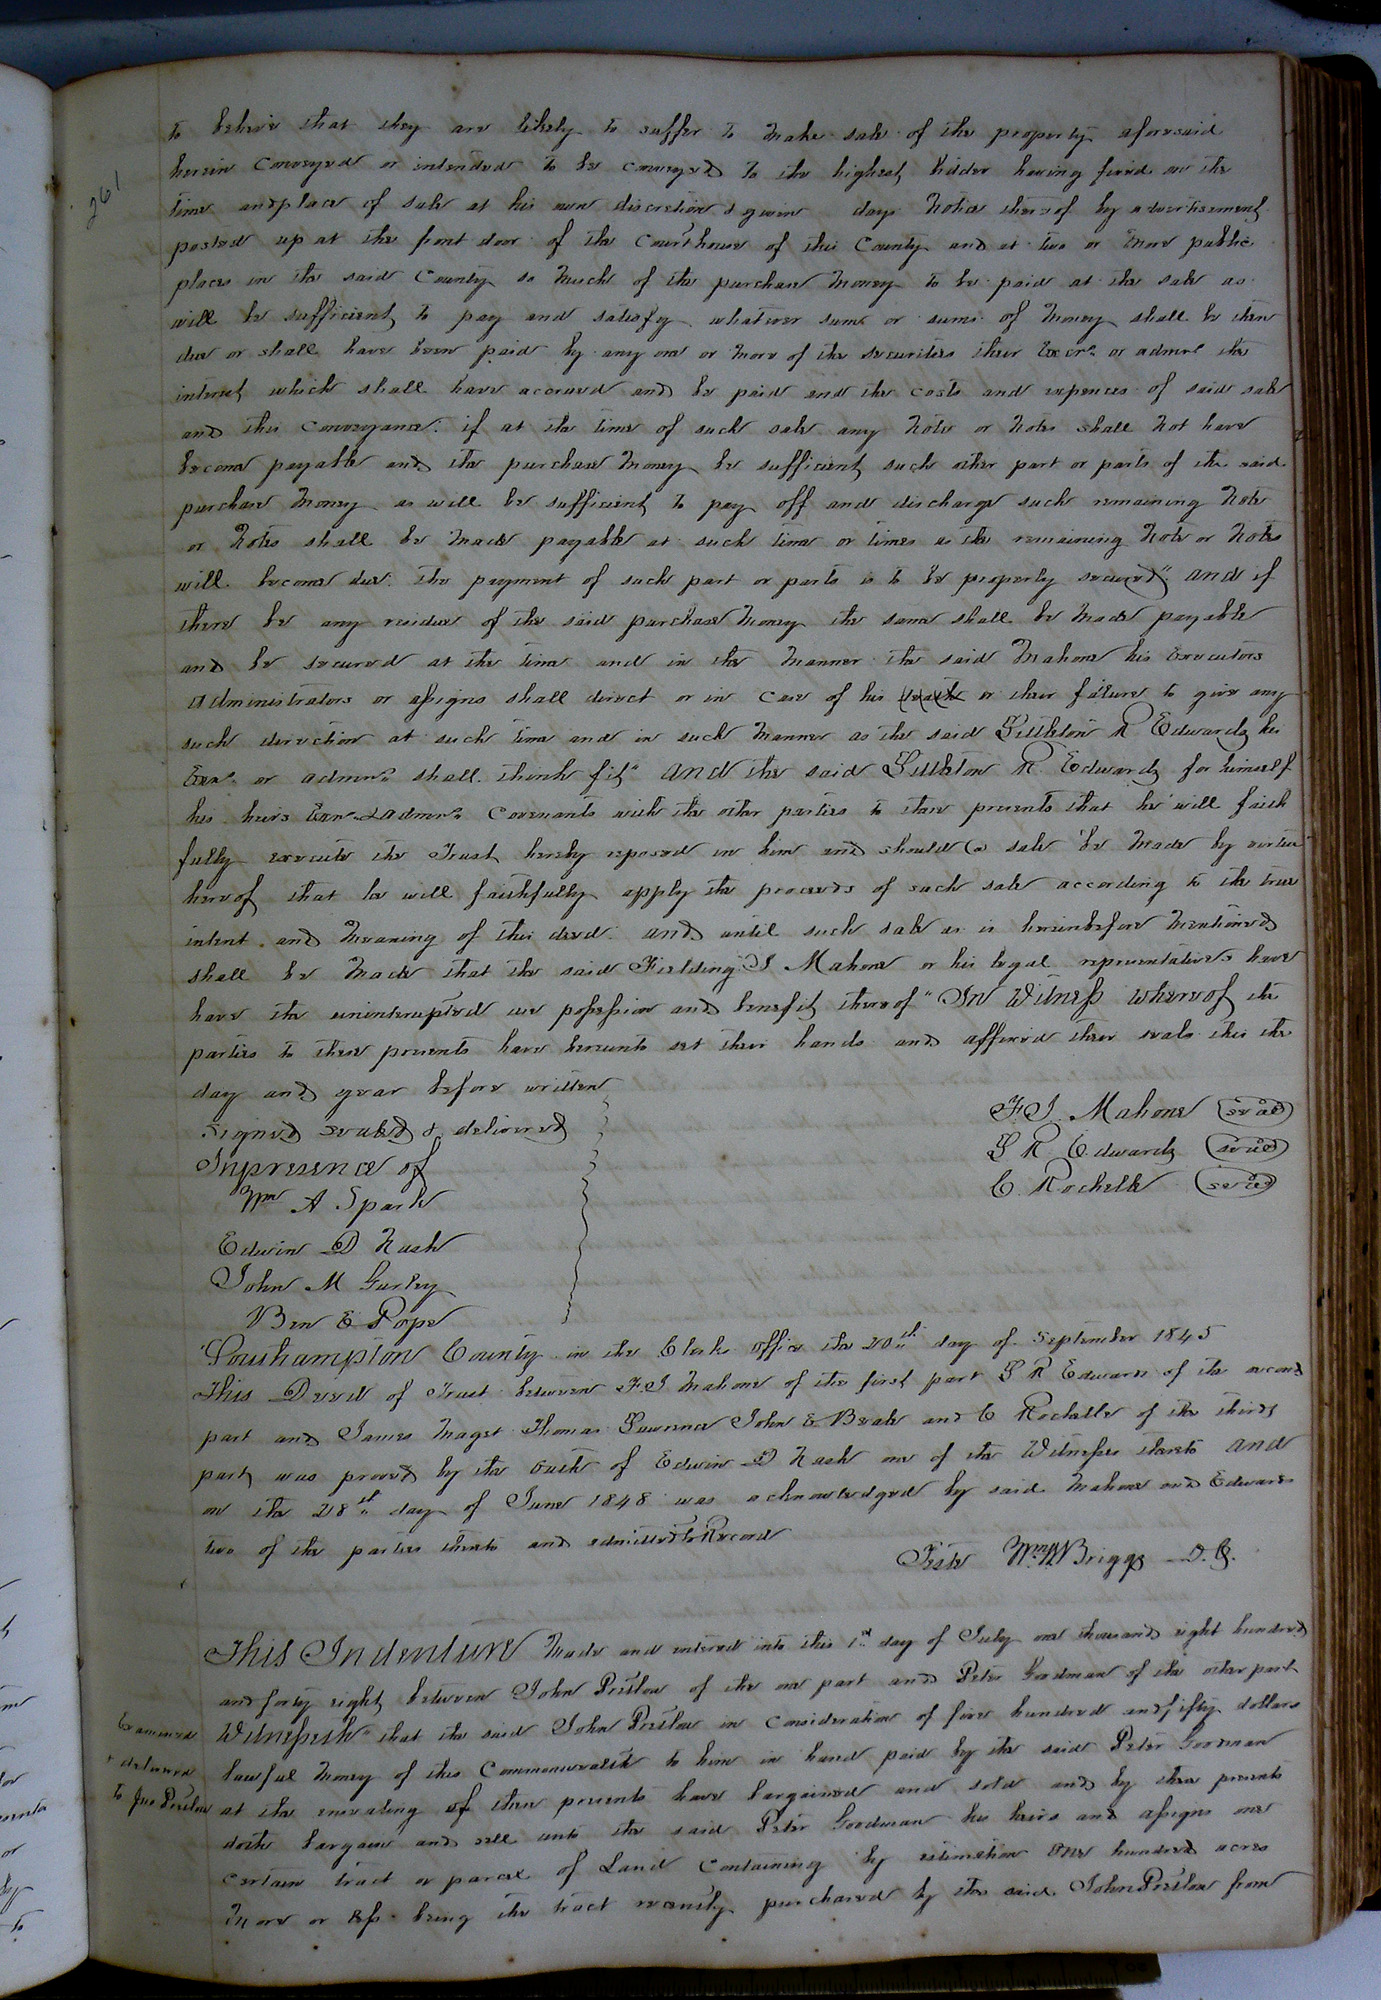 261
to believe that they are likely to suffer to make sale of the property aforesaid
herein conveyed or intended to be conveyed to the highest bidder having fixed on the
time and place of sale at his own discretion & given days notice thereof by advertisement
posted up at the front door of the Courthouse of this County and at two or more public
places in the said County so much of the purchase money to be paid at the sale as
will be sufficient to pay and satisfy whatever sum or sums of money shall be then
due or shall have been paid by any one or more of the securities their Excrs or admrs the
interest which shall have accrued and be paid and the costs and expences of said sale
and this conveyance. if at the time of such sale any note or notes shall not have
become payable and the purchase money be sufficient such other part or parts of the said
purchase money as will be sufficient to pay off and discharge such remaining note
or notes shall be made payable at such time or times as the remaining note or notes
will become due. the payment of such part or parts is to be properly secured" and if
there be any residue of the said purchase money the same shall be made payable
and be secured at the time and in the manner the said Mahone his executors
administrators or assigns shall direct or in case of his or their failure to give any
such direction at such time and in such manner as the said Littleton R Edwards his
Exrs. or admrs shall think fit" and the said Littleton R. Edwards for himself
his heirs Exrs & admrs covenants with the other parties to these presents that he will faith
fully execute the Trust hereby reposed in him and should a sale be made by virtue
hereof that he will faithfully apply the proceeds of such sale according to the true
intent and meaning of this deed. and until such sale as is hereinbefore mentioned
shall be made that the said Fielding J Mahone or his legal representatives have
have the uninterupted use possession and benefit thereof" In Witness whereof the
parties to these presents have hereunto set their hands and affixed their seals this the
day and year before written
Signed sealed & delivered
Inpresence of
Wm A Spark
Edwin D Nash
John M Gurley
Ben E Pope
F. J. Mahone (seal)
L R Edwards (seal)
C. Rochelle (seal)
Southampton County in the Clerks office the 20th day of September 1845
This Deed of Trust between F. J Mahone of the first part L R Edwards of the second
part and James Maget Thomas Lawrence John E Beale and C Rochelle of the third
part was proved by the oath of Edwin D Nash one of the Witnesses thereto and
on the 28th day of June 1848 was acknowledged by said Mahone and Edwards
two of the parties thereto and admitted to Record
Teste Wm W Briggs D. C.
This Indenture made and entered into this 1st day of July one thousand eight hundred
and forty eight between John Preslow of the one part and Peter Goodman of the other part
Witnesseth" that the said John Preslow in consideration of five hundred and fifty dollars
lawful money of this Commonwealth to him in hand paid by the said Peter Goodman
at the ensealing of these presents have bargained and sold and by these presents
doth bargain and sell unto the said Peter Goodman his heirs and assigns one
certain tract or parcel of Land containing by estimation one hundred acres
more or less being the tract recently purchased by the said John Preslow from
Examined
& delivered
to Jno Preslow